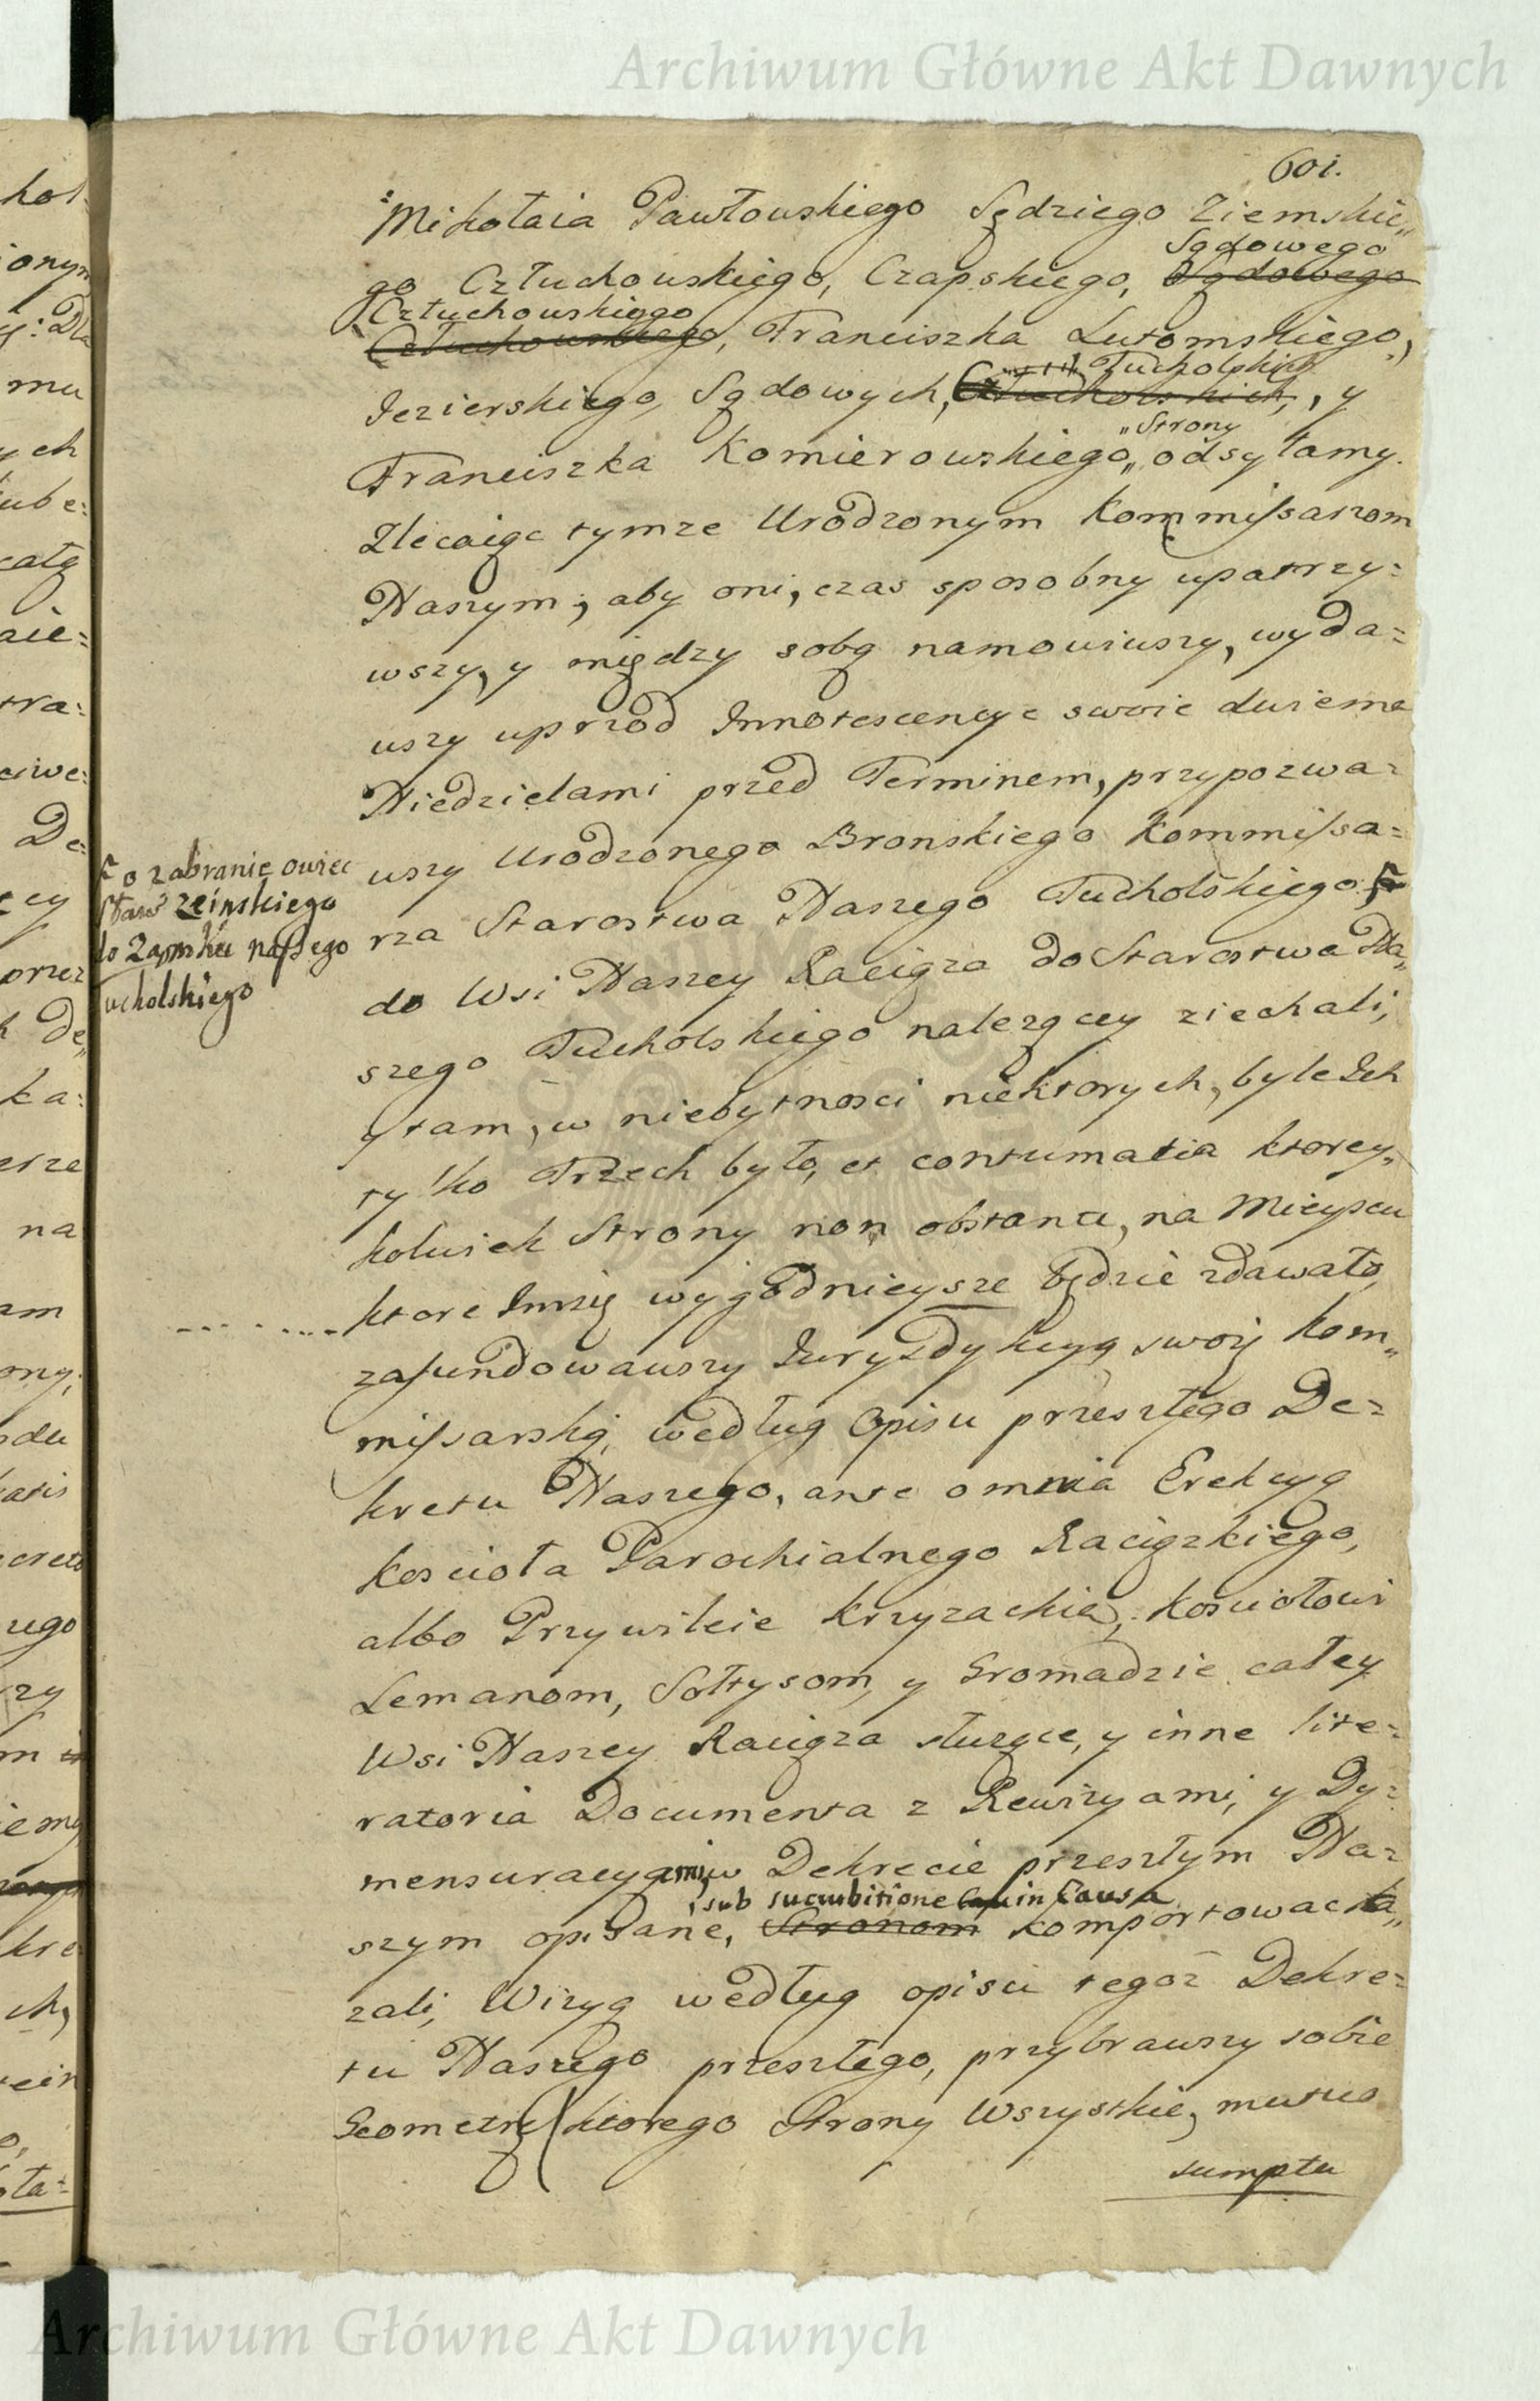 Archiwum Główne Akt Dawnych
601.
Mikołaia Pawłowskiego Sędziego Ziemskie„
Sądowego
go Człuchowskiego, Czapskiego, Sądowego
Człuchowskiego
Człuchowskiego, Franciszka Lutomskiego,
Tucholskich
Jezierskiego, Sądowych, Człuchowskich, y
„Strony
Franciszka Komierowskiego„ odsyłamy.
Zlecaiąc tymze Urodzonym Kommissarzom
Naszym, aby oni, czas sposobny upatrzy=
wszy, y między sobą namowiwszy, wyda=
wszy uprzod Innotescencye swoie dwiema
Niedzielami przed Terminem, przypozwa=
wszy Urodzonego Bronskiego Kommissa=
rza Starostwa Naszego Tucholskiego
o zabranie owiec
Zeinskiego
do Zamku naszego
Tucholskiego
do Wsi Naszey Raciąza do Starostwa Na„
szego Tucholskiego nalezącey ziechali,
y tam, w niebytnosci niektorych, byle Ich
tylko Trzech było, et contumatia ktorey„
kolwiek Strony non obstante, na Mieyscu
ktore Im się wygodnieysze będzie zdawało,
zafundowawszy Jurysdykcyą swoię Kom„
missarską, według Opisu przeszłego De=
kretu Naszego, ante omnia Erekcyą
Koscioła Parochialnego Raciązkiego,
albo Przywileie Krzyzackie, Kosciołowi
Lemanom, Sołtysom, y Gromadzie całey
Wsi Naszey Raciąza słuzące, y inne lite=
ratoria Documenta z Rewizyami, y Dy=
mensuracyami w Dekrecie przeszłym Na=
sub sucumbitione in Causa
szym opisane, Stronom komportowac ka„
zali, Wizyą według opisu tegoz Dekre=
tu Naszego przeszłego, przybrawszy sobie
Geometrę ktorego Strony Wszystkie, mutuo
sumptu
Archiwum Główne Akt Dawnych